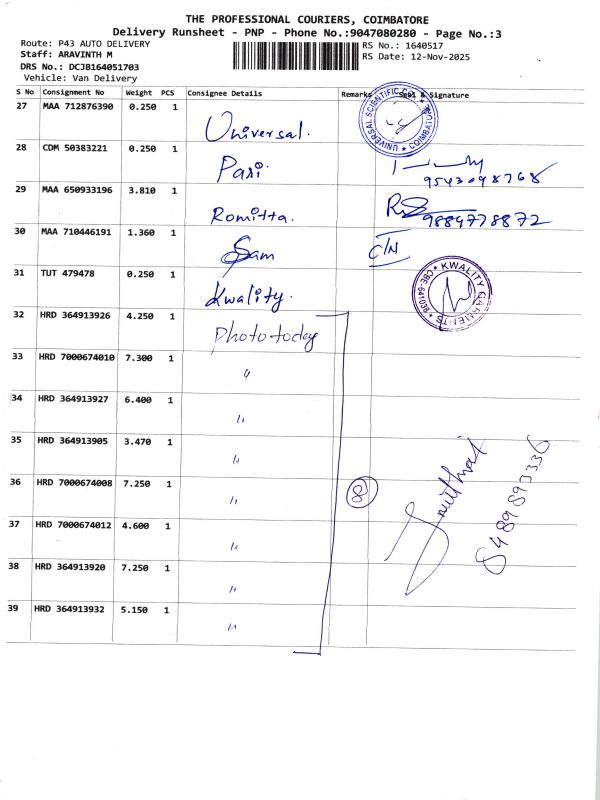 THE PROFESSIONAL COURIERS, COIMBATORE
Delivery Runsheet - PNP - Phone No.:9047080280 - Page No.:3
Route: P43 AUTO DELIVERY
Staff: ARAVINTH M
DRS No.: DCJB164051703
Vehicle: Van Delivery
RS No.: 1640517
RS Date: 12-Nov-2025
S No Consignment No Weight PCS Consignee Details Remarks Seal & Signature
27 MAA 712876390 0.250 1 Universal.
UNIVERSAL SCIENTIFIC COIMBATORE
28 CDM 50383221 0.250 1 Pari
9543098768
29 MAA 650933196 3.810 1 Romitta.
9884778872
30 MAA 710446191 1.360 1 Sam C/N
31 TUT 479478 0.250 1 Kwality.
KWALITY GARMENTS
32 HRD 364913926 4.250 1 Phototoday
33 HRD 7000674010 7.300 1 "
34 HRD 364913927 6.400 1 "
35 HRD 364913905 3.470 1 "
36 HRD 7000674008 7.250 1 " 8
37 HRD 7000674012 4.600 1 "
38 HRD 364913920 7.250 1 "
39 HRD 364913932 5.150 1 "
8489893336